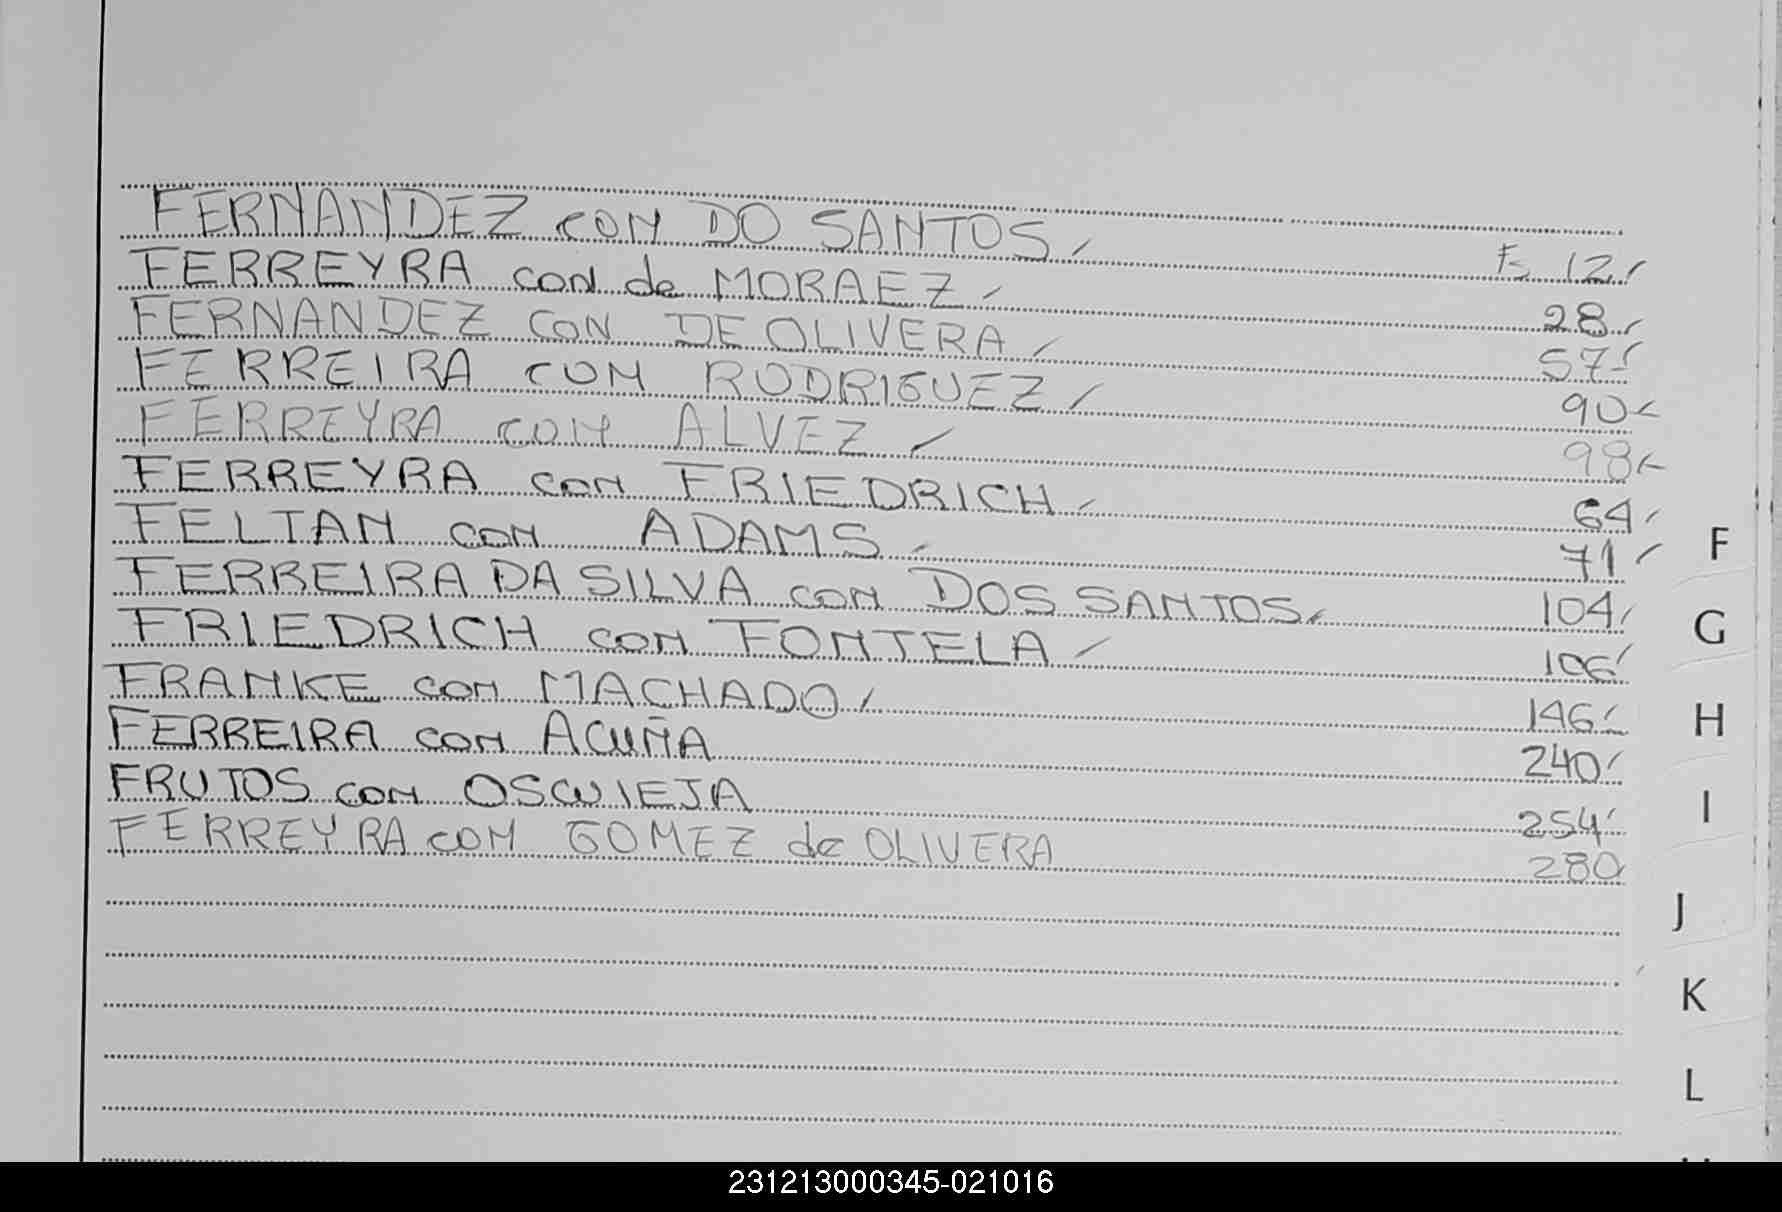 FERNANDEZ con DO SANTOS, F. 12,
FERREYRA con de MORAEZ, 28,
FERNANDEZ CON DE OLIVERA, 57,
FERREIRA CON RODRIGUEZ, 90
FERREYRA con ALVEZ, 98
FERREYRA con FRIEDRICH, 64,
FELTAN con ADAMS, 71,
FERREIRA DA SILVA con DOS SANTOS, 104,
FRIEDRICH con FONTELA, 106
FRANKE con MACHADO, 146
FERREIRA con ACUÑA 240
FRUTOS con OSCUIEJA 254
FERREYRA con GOMEZ de OLIVERA 280
F
G
H
I
J
K
L
231213000345-021016